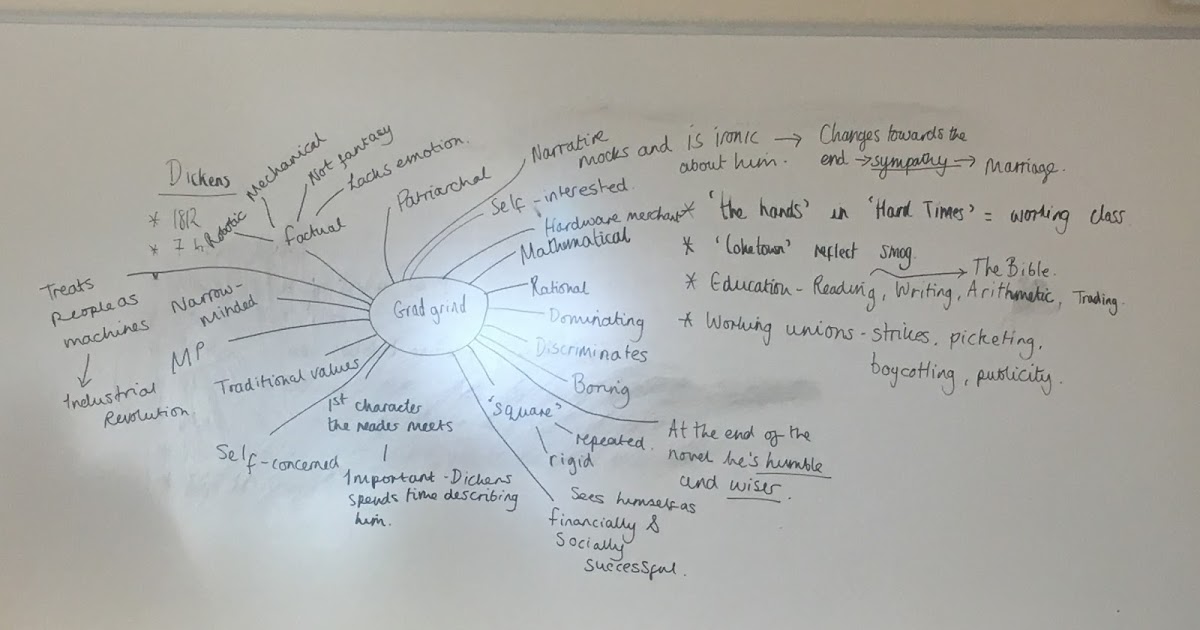 Dickens
* 1812
* 7
Robotic
Mechanical
Not fantasy
Lacks emotion.
factual
Patriarchal
Narrative
mocks and is ironic → Changes towards the
about him. end → sympathy → Marriage.
Self-interested.
Hardware merchant
Mathematical
Rational
Dominating
Discriminates
Boring
Gradgrind
Treats
People as
machines
Industrial
Revolution.
Narrow-
minded
MP
Traditional values
Self-concerned
1st character
the reader meets
Important - Dickens
spends time describing
him.
'square'
repeated.
rigid
Sees himself as
financially &
Socially
successful.
At the end of the
novel he's humble
and wiser.
* 'the hands' in 'Hard Times' = working class
* 'Coketown' reflect smog.
* Education - Reading, Writing, Arithmetic, Trading.
The Bible.
* Working unions - strikes, picketing,
boycotting, publicity.